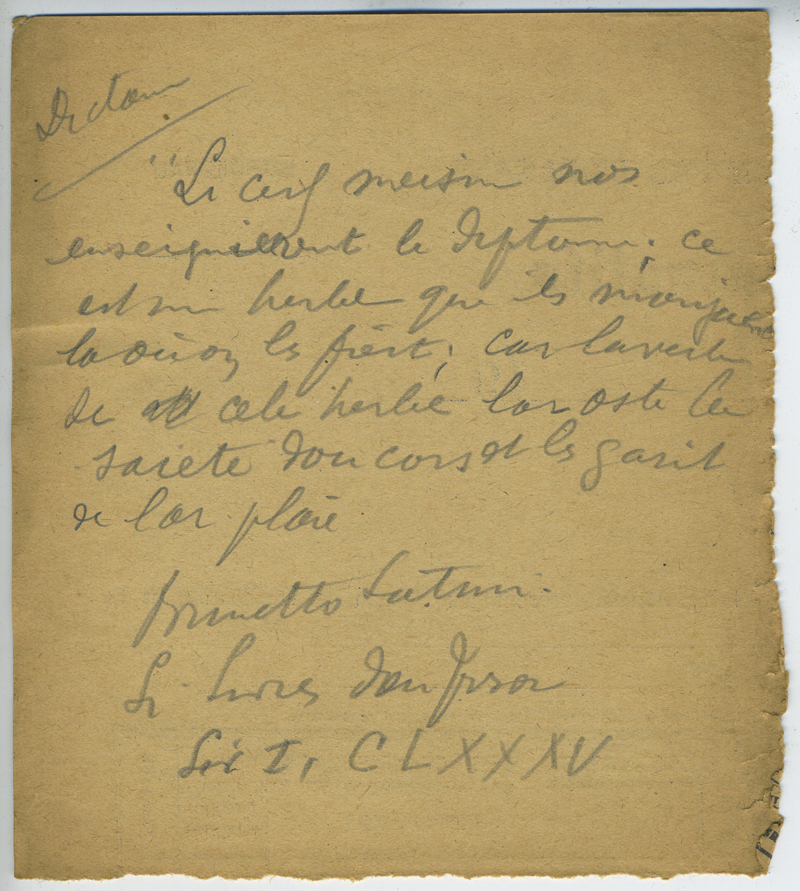 Dictam
"Li cerf meisme nos
enseignierent le diptame; ce
est une herbe que ils manjuent
la ou on les fiert; car la vertu
de cele herbe lor oste la
saiete dou cors et les garit
de lor plaie
Brunetto Latini.
Li Livres dou Tresor
Liv I, CLXXXV